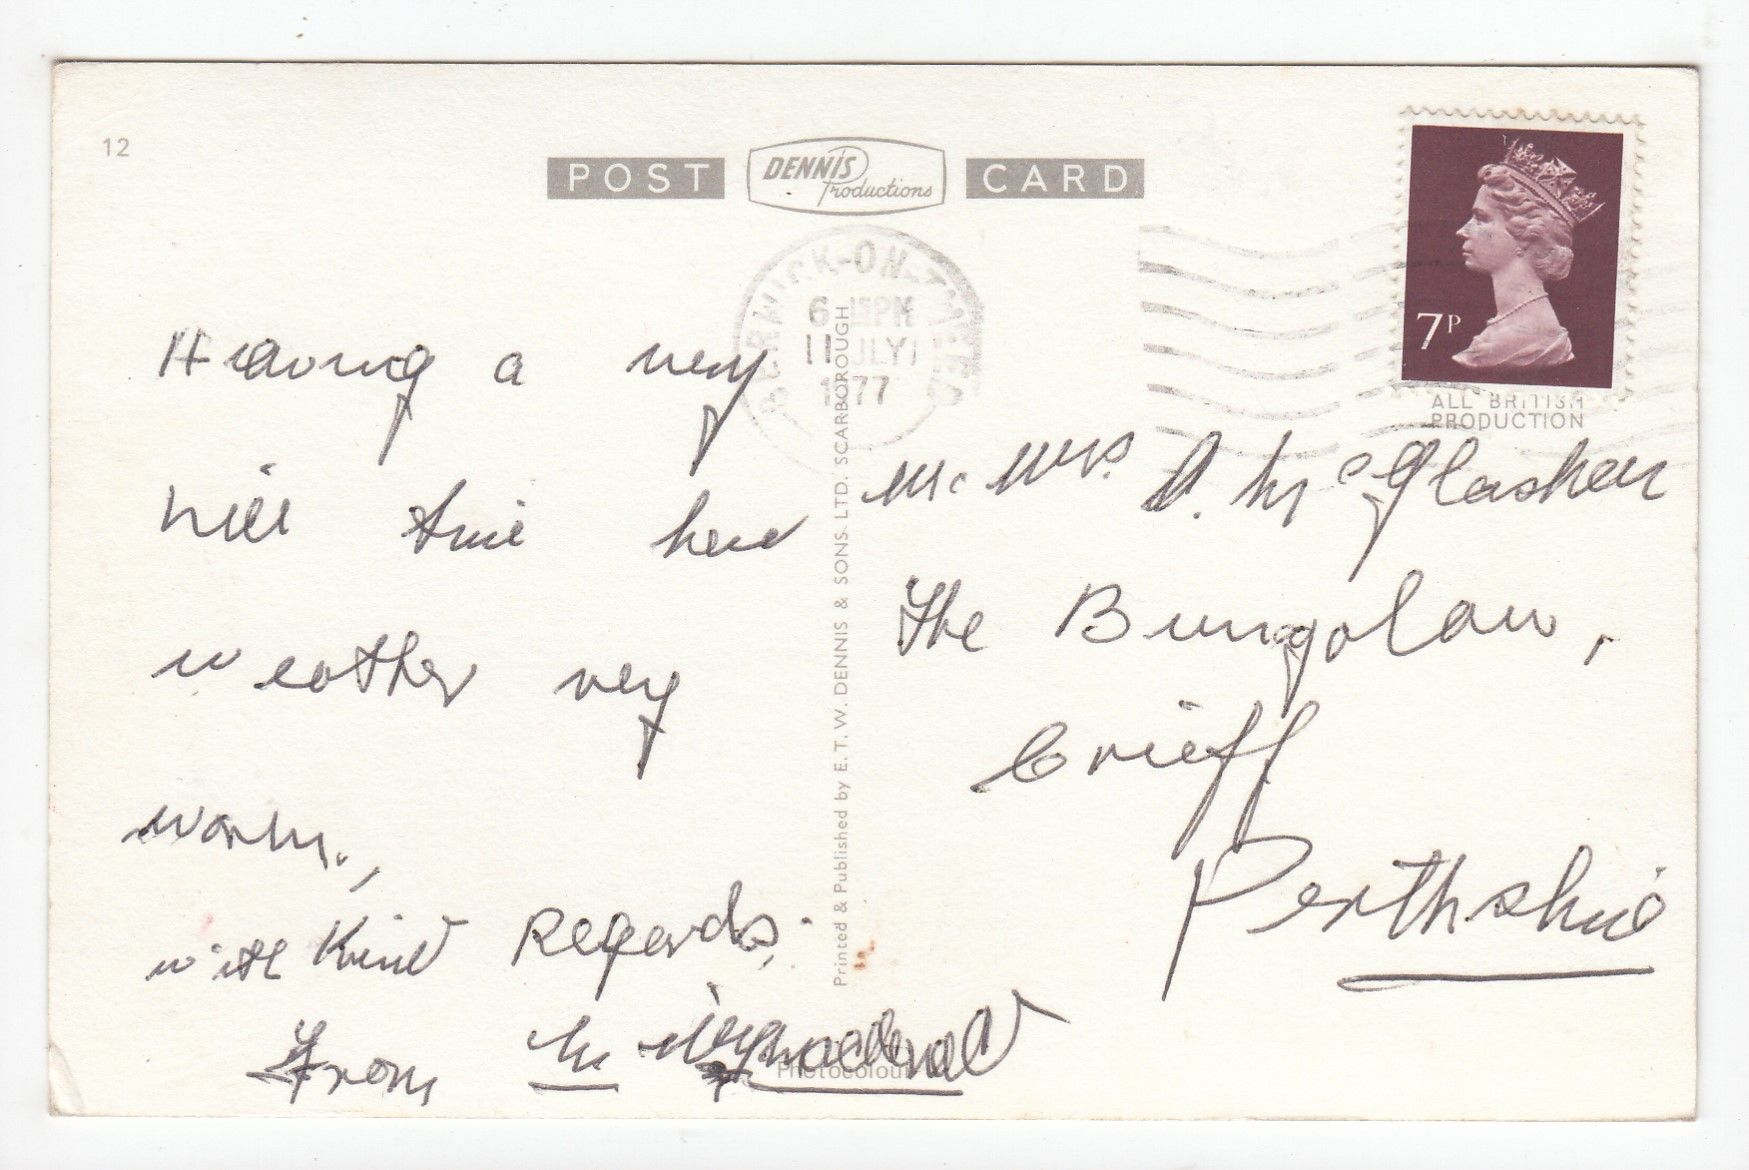 12
POST DENNIS Productions CARD
BERWICK-ON-TWEED
6 15PM
11 JLY
1977
7P
ALL BRITISH
PRODUCTION
Having a very
nice time here
weather very
warm.,
with Kind Regards.
From
Mr. Mrs. D. McGlashen
The Bungalow,
Crieff
Perthshire
Printed & Published by E. T. W. DENNIS & SONS. LTD. SCARBOROUGH
Photocolour